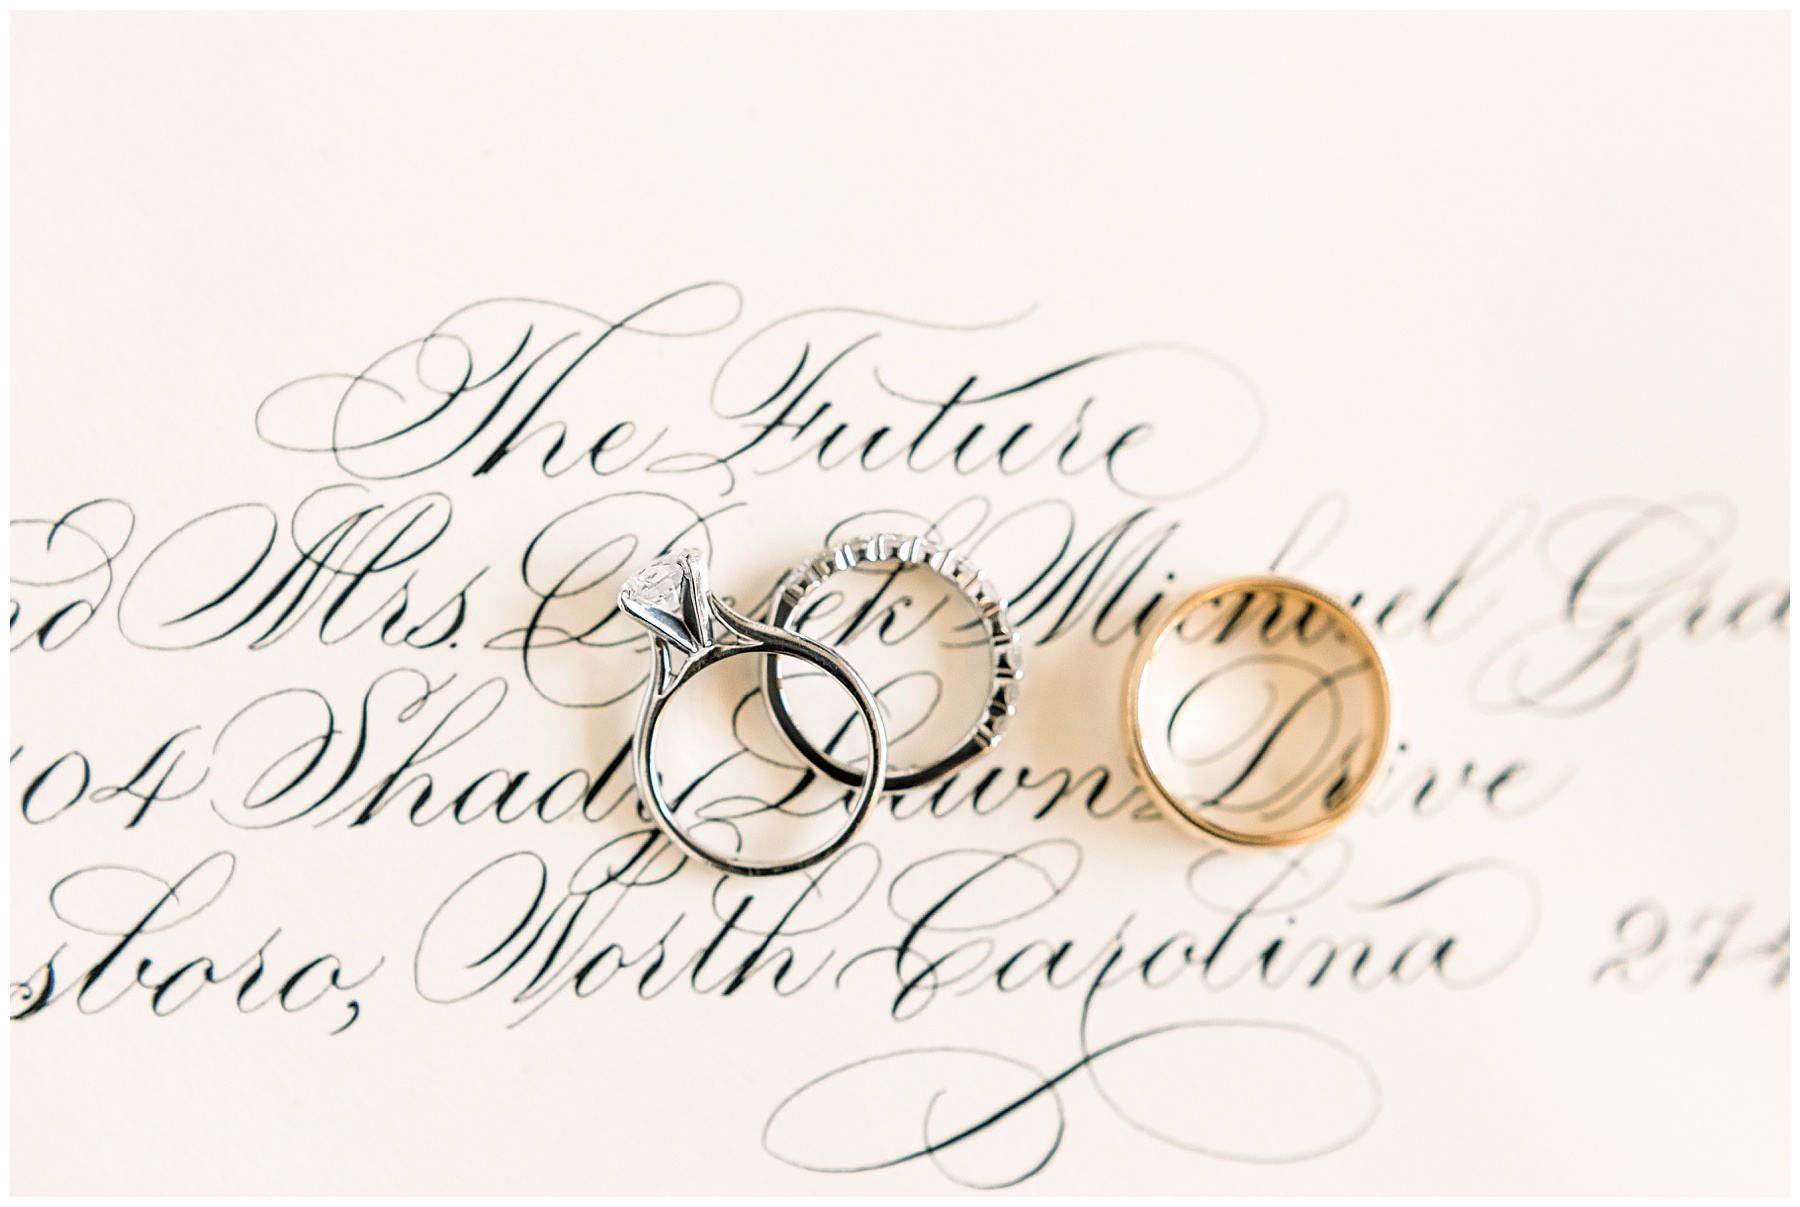 The Future
nd Mrs. Derek Michael Gra
404 Shady Lawn Drive
sboro, North Carolina 274